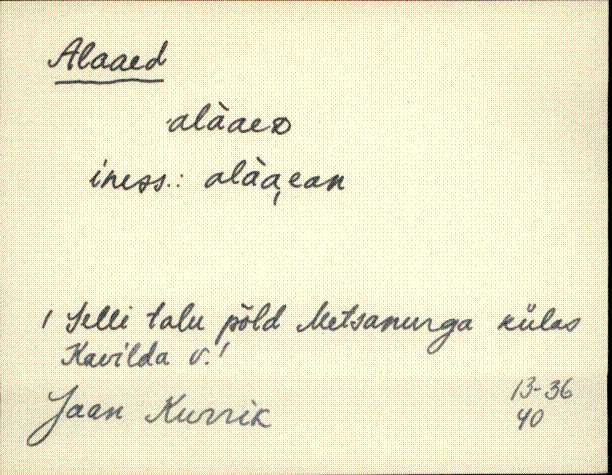 Alaaed
alàaeᴅ
iness.: alàa̦ean
! Selli talu põld Metsanurga külas
Kavilda v.!
Jaan Kurrik
13-36
40